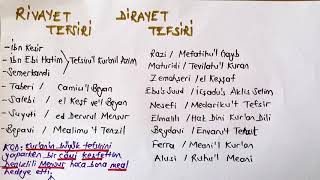 RİVAYET TEFSİRİ
- İbn Kesir
- İbn Ebi Hatim
- Semerkandi
Tefsiru'l Kur'anil Azim
- Taberi / Camiu'l Beyan
- Salebi / el Keşf ve'l Beyan
- Suyuti / ed Dervul Mensur
- Begavi / Mealimu't Tenzil
KOD: Kur'anın büyük tefsirini
yaparken bir cami keşfettim
Mensur hoca bana meal
hediye etti.
DİRAYET TEFSİRİ
Razi / Mefatihu'l Gayb
Maturidi / Tevilatu'l Kuran
Zemahşeri / el Keşşaf
Ebu's Suud / İrşadu's Aklis Selim
Nesefi / Medariku't Tefsir
Elmalılı / Hak Dini Kur'an Dili
Beydavi / Envarut Tenzil
Ferra / Meani'l Kuran
Alusi / Ruhu'l Meani